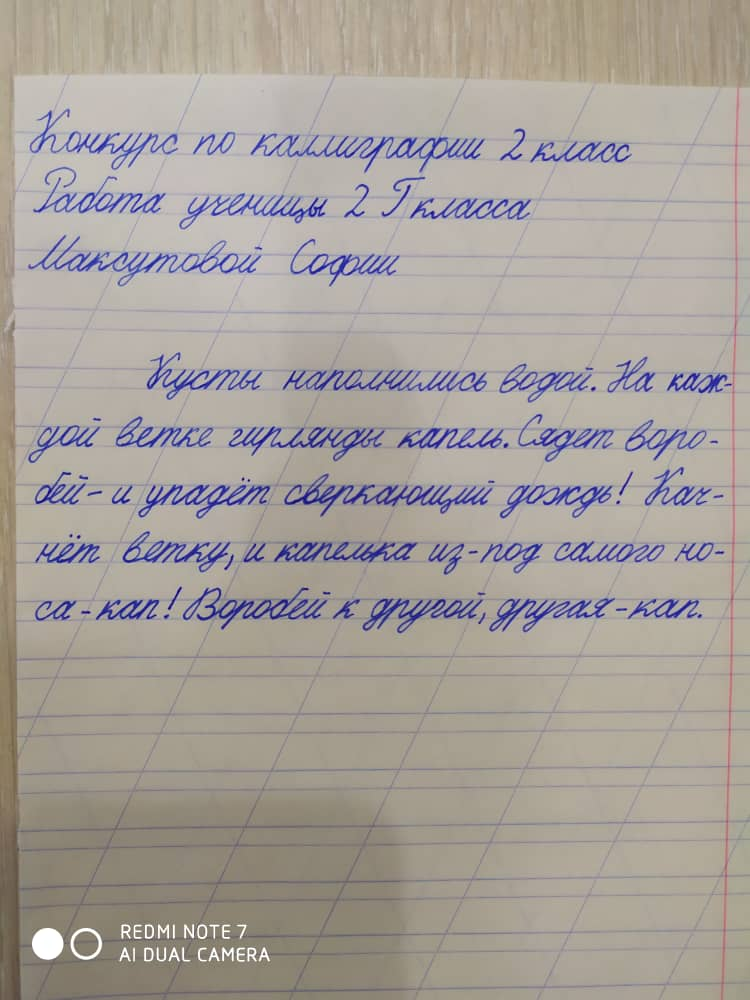 Конкурс по каллиграфии 2 класс
Работа ученицы 2 Г класса
Максутовой Софии
Кусты наполнились водой. На каж-
дой ветке гирлянды капель. Сядет воро-
бей - и упадёт сверкающий дождь! Кач-
нёт ветку, и капелька из-под самого но-
са - кап! Воробей к другой, другая - кап.
REDMI NOTE 7
AI DUAL CAMERA